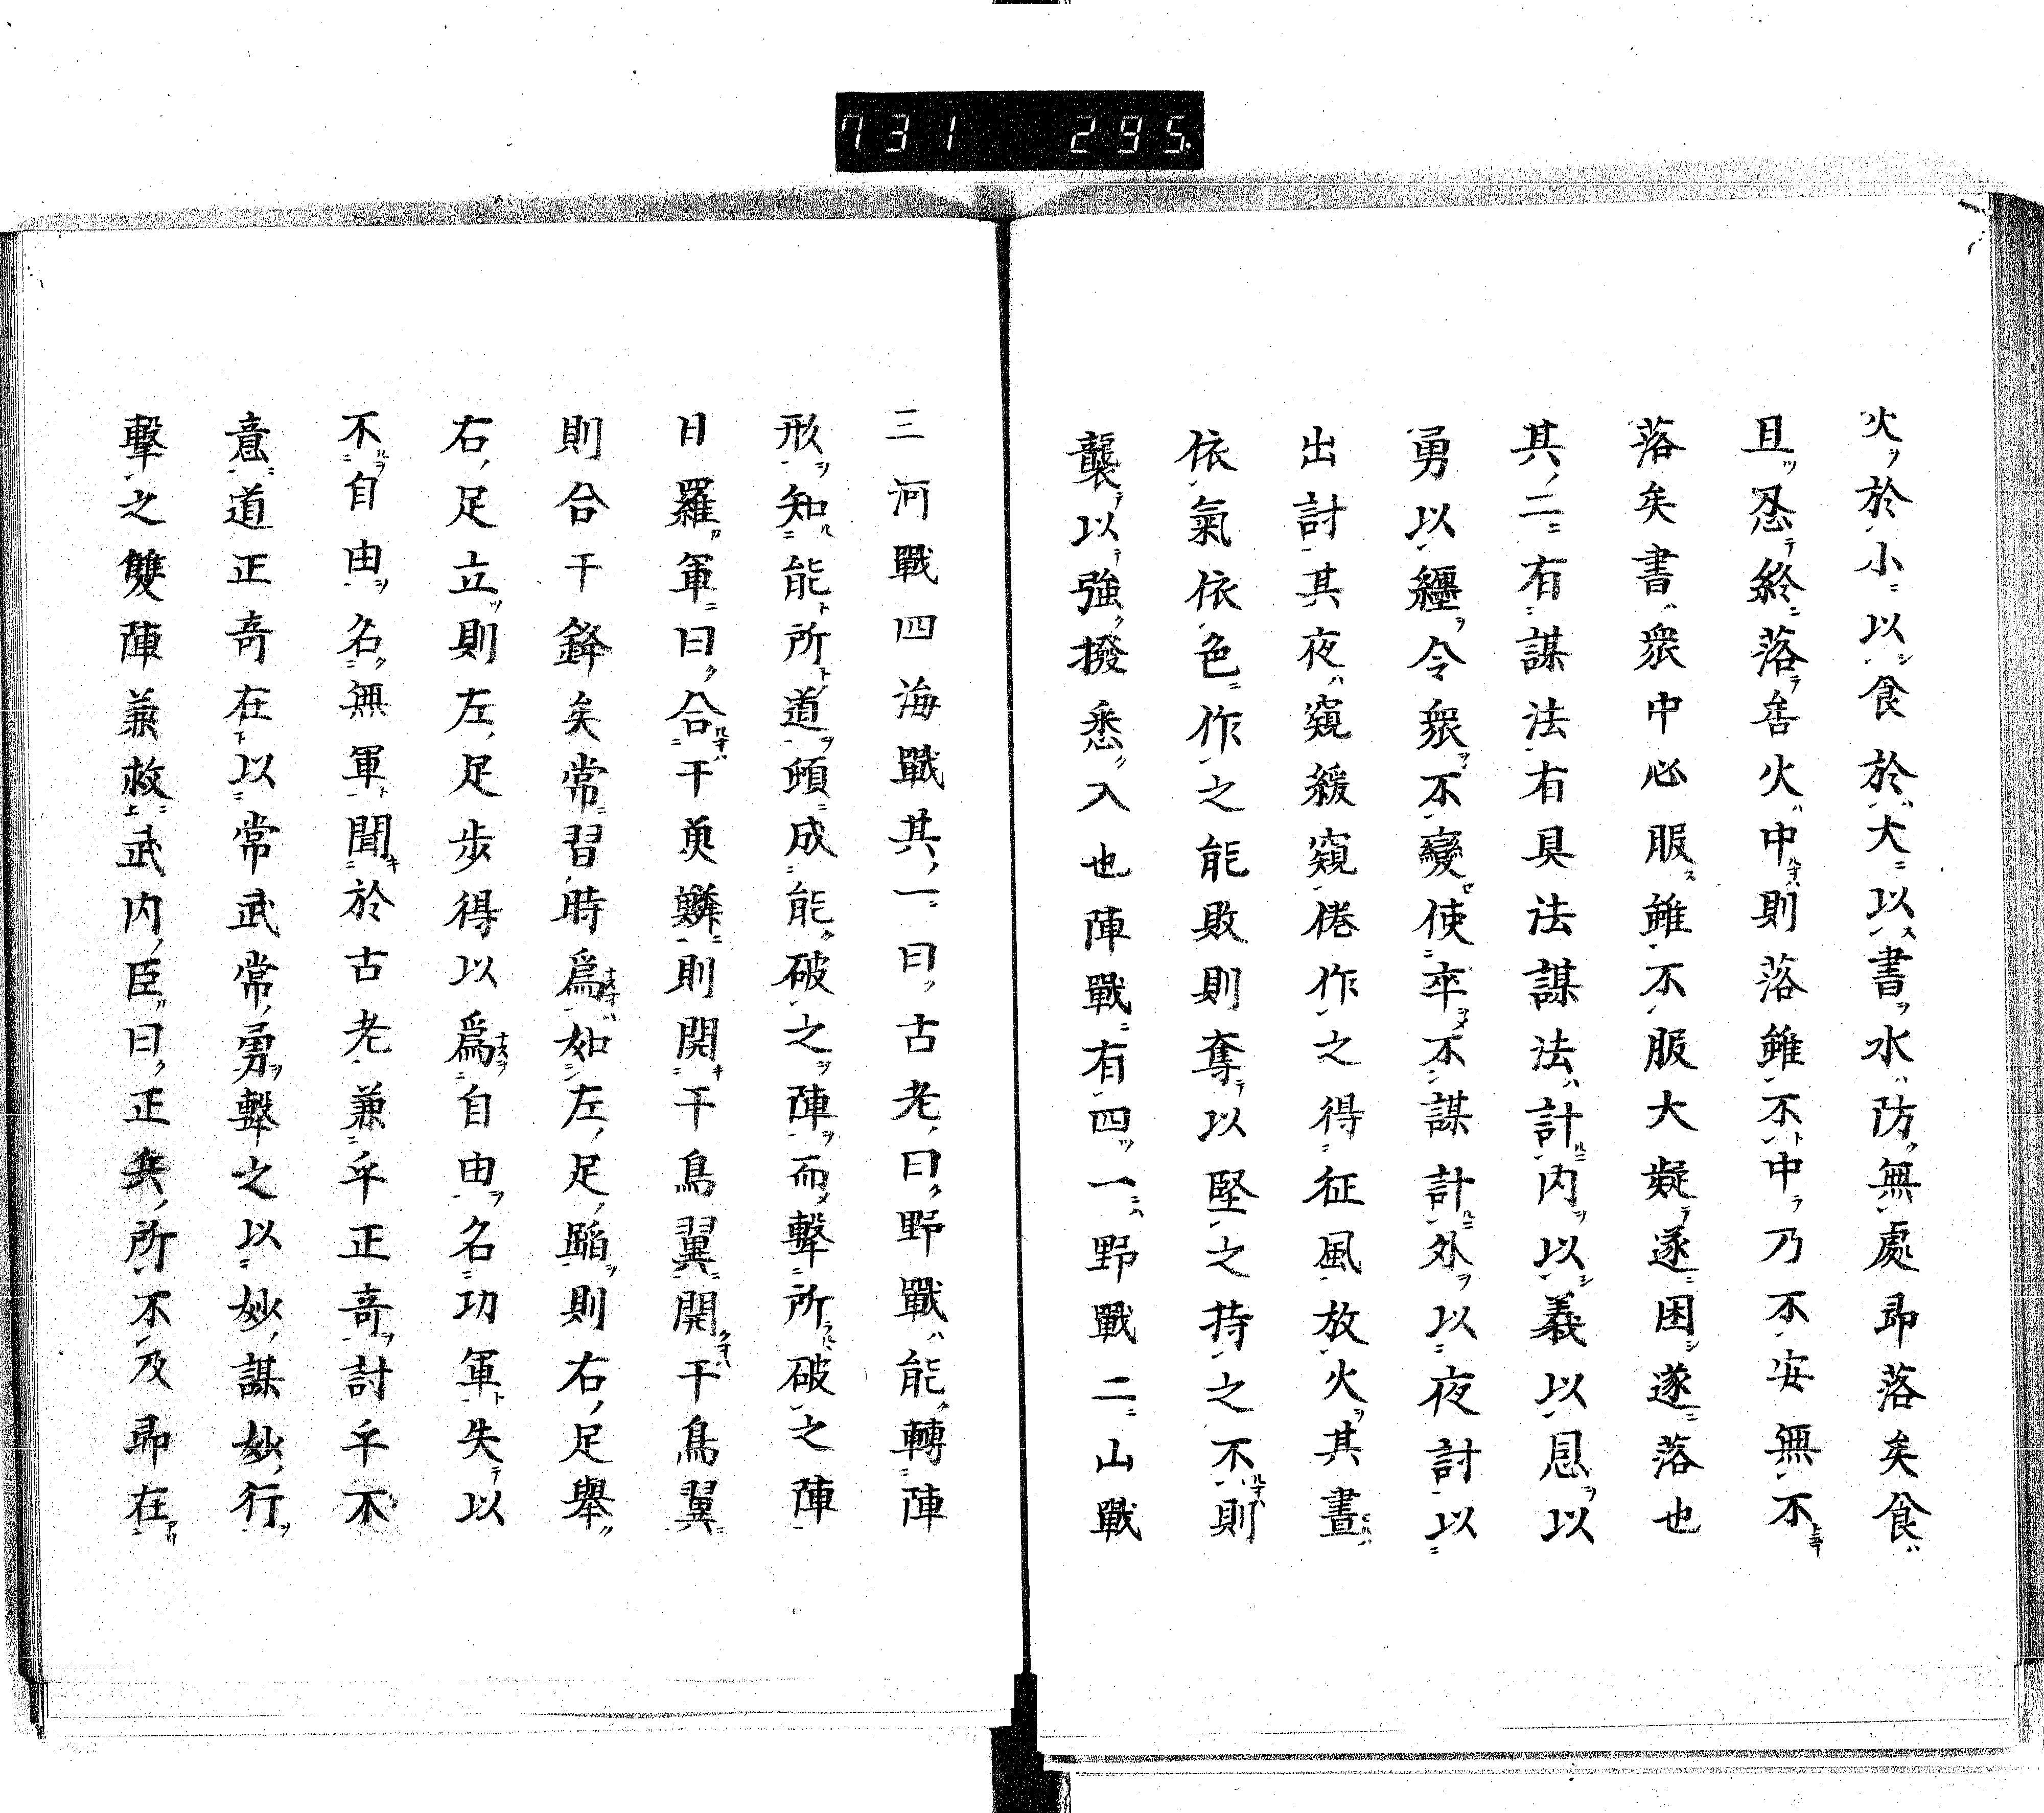 731 295.
火於小以食於大以書水防無處即落矣食
且忍終落害火中則落雖不中乃不安無不
落矣書衆中必服雖不服大疑遂困遂落也
其二有謀法有具法謀法計内以義以恩以
勇以纏令衆不變使卒不謀計外以夜討以
出討其夜窺緩窺倦作之得征風放火其晝
依氣依色作之能敗則奪以堅之持之不則
襲以強撥悉入也陣戰有四一野戰二山戰
三河戰四海戰其一曰古老曰野戰能轉陣
形知能所道頌成能破之陣而擊所破之陣
日羅軍曰合干魚鱗則開干鳥翼開干鳥翼
則合干鋒矣常習時爲如左足蹈則右足舉
右足立則左足步得以爲自由名功軍失以
不自由名無軍聞於古老兼乎正奇討乎不
意道正奇在以常武常勇擊之以妙謀妙行
擊之雙陣兼救武内臣曰正兵所不及即在